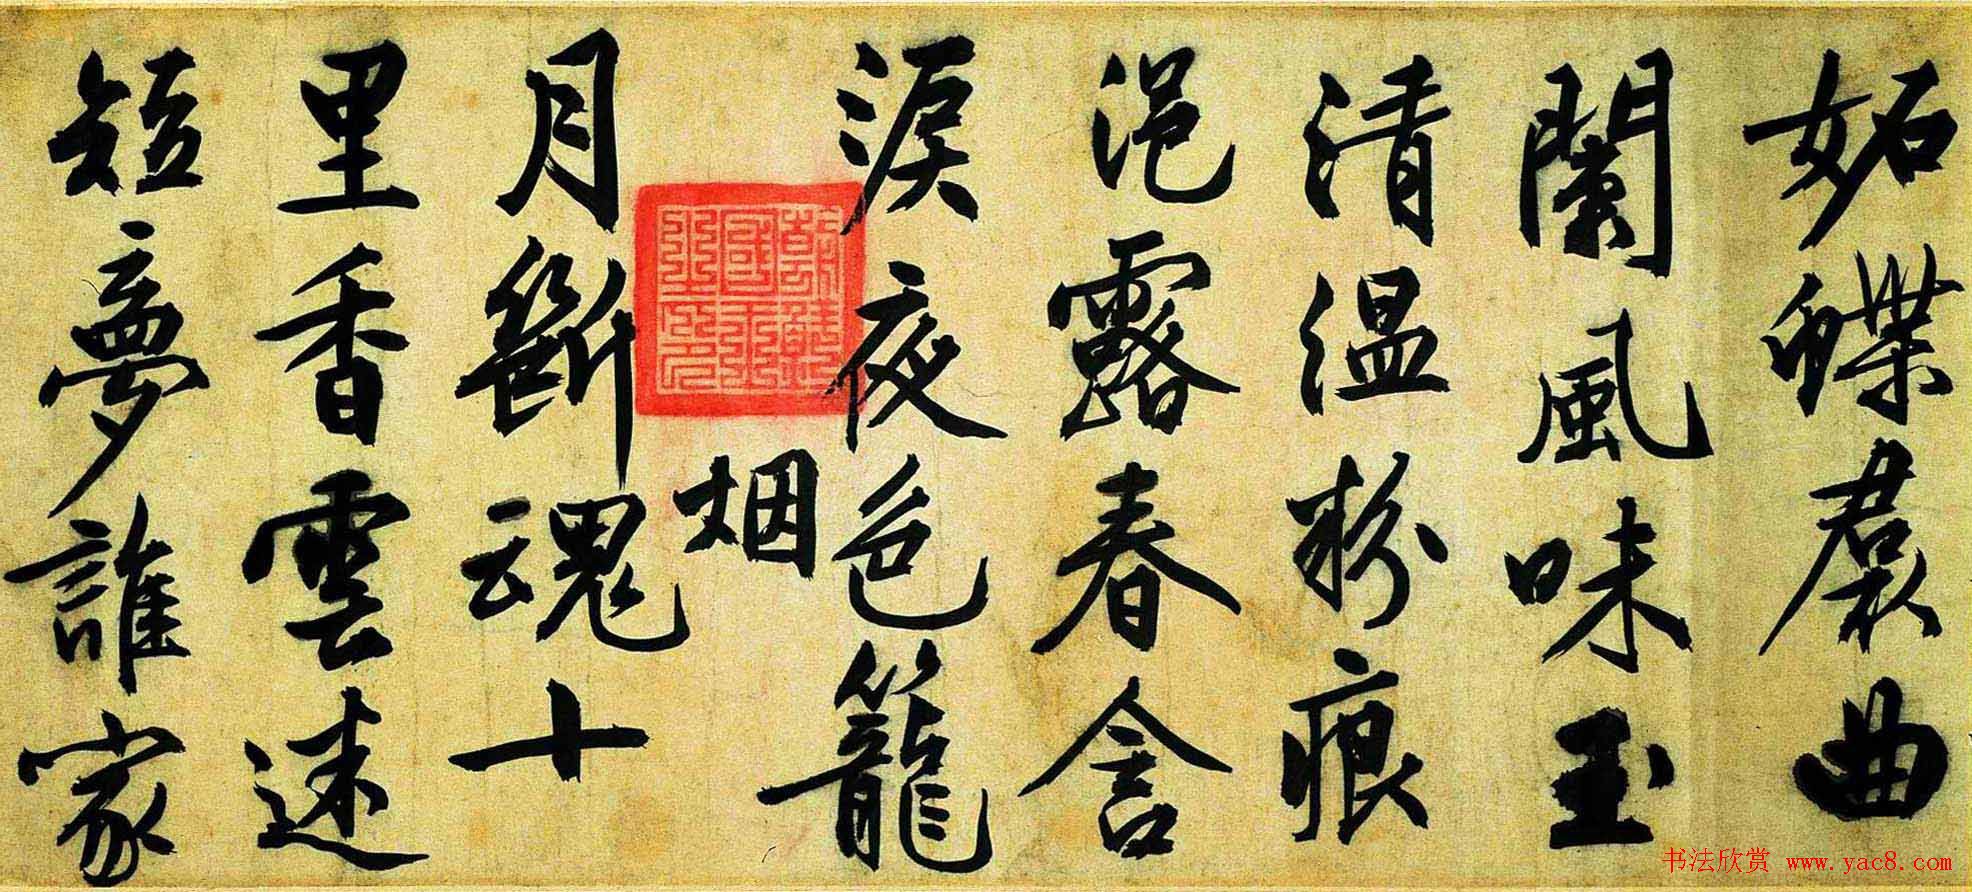 妬蝶裙曲
闌風味玉
清温粉痕
浥露春含
淚夜色籠
烟
月斷魂十
里香雲迷
短夢誰家
书法欣赏 www.yac8.com